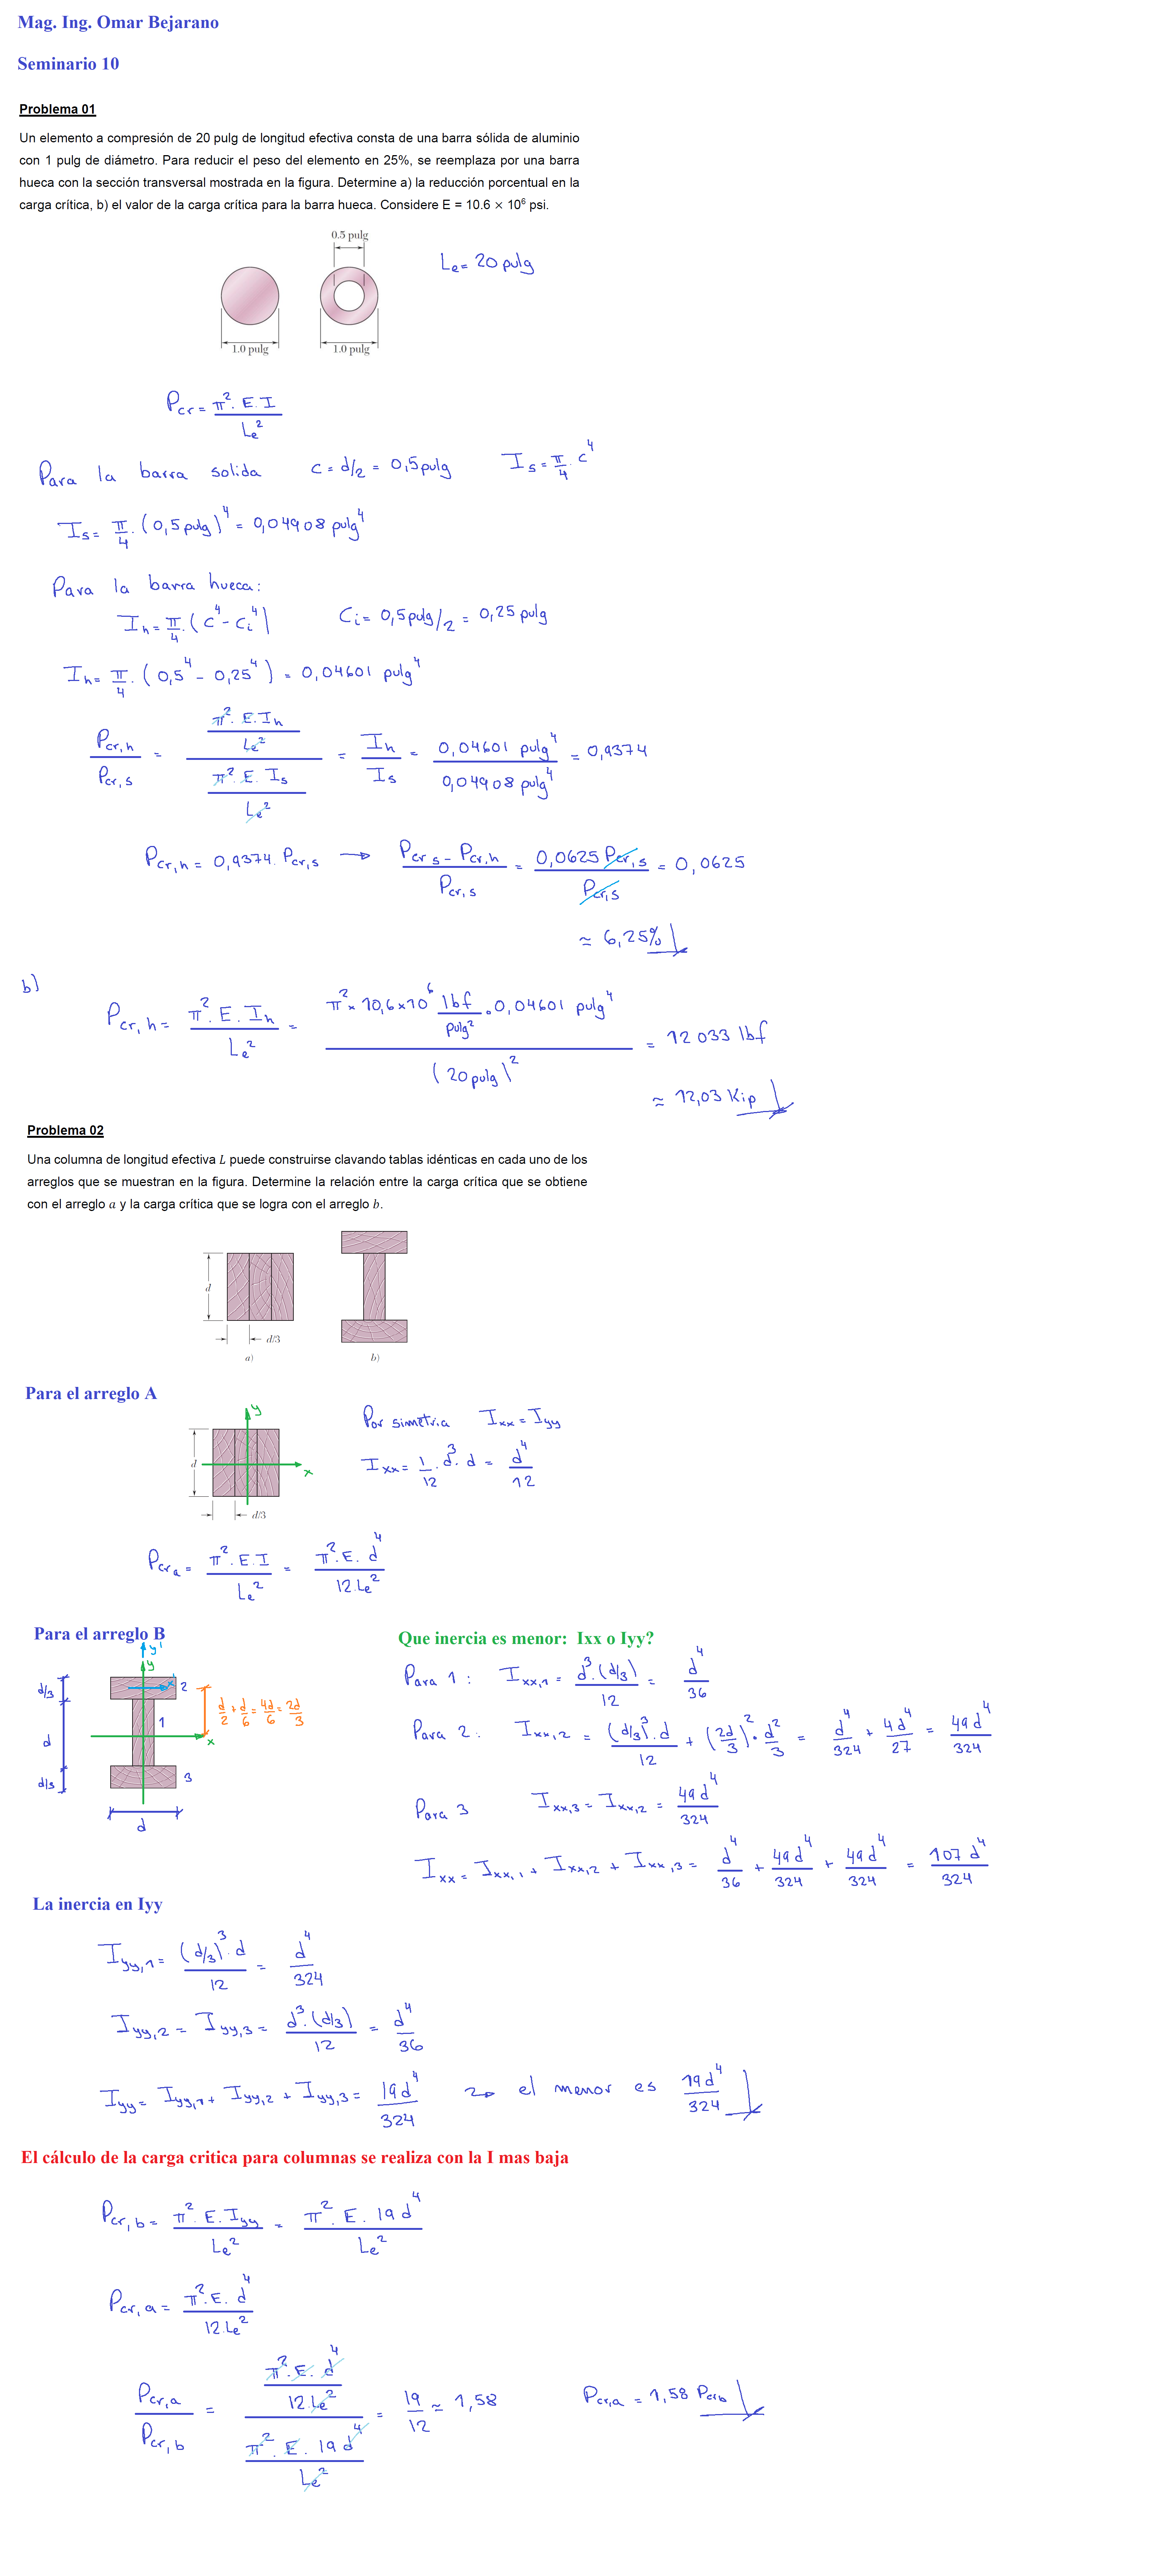 Mag. Ing. Omar Bejarano
Seminario 10
Problema 01
Un elemento a compresión de 20 pulg de longitud efectiva consta de una barra sólida de aluminio
con 1 pulg de diámetro. Para reducir el peso del elemento en 25%, se reemplaza por una barra
hueca con la sección transversal mostrada en la figura. Determine a) la reducción porcentual en la
carga crítica, b) el valor de la carga crítica para la barra hueca. Considere E = 10.6 × 10⁶ psi.
0.5 pulg
1.0 pulg 1.0 pulg
Le = 20 pulg
Pcr = π². E. I / Le²
Para la barra solida c = d/2 = 0,5 pulg Is = π/4 . c⁴
Is = π/4 . (0,5 pulg)⁴ = 0,04908 pulg⁴
Para la barra hueca:
Ih = π/4 . (c⁴ - ci⁴) Ci = 0,5 pulg/2 = 0,25 pulg
Ih = π/4 . (0,5⁴ - 0,25⁴) = 0,04601 pulg⁴
Pcr,h / Pcr,s = (π². E. Ih / Le²) / (π². E. Is / Le²) = Ih / Is = 0,04601 pulg⁴ / 0,04908 pulg⁴ = 0,9374
Pcr,h = 0,9374. Pcr,s → (Pcr s - Pcr,h) / Pcr,s = 0,0625 Pcr,s / Pcr,s = 0,0625
≈ 6,25%
b)
Pcr,h = π². E. Ih / Le² = π² × 10,6 × 10⁶ lbf/pulg² . 0,04601 pulg⁴ / (20 pulg)² = 12 033 lbf
≈ 12,03 Kip
Problema 02
Una columna de longitud efectiva L puede construirse clavando tablas idénticas en cada uno de los
arreglos que se muestran en la figura. Determine la relación entre la carga crítica que se obtiene
con el arreglo a y la carga crítica que se logra con el arreglo b.
d
d/3
a) b)
Para el arreglo A
y
d
x
d/3
Por simetria Ixx = Iyy
Ixx = 1/12 . d³. d = d⁴/12
Pcr a = π². E. I / Le² = π². E. d⁴ / 12. Le²
Para el arreglo B
y'
y
x'
d/3
d
d/3
2
1
3
x
d
d/2 + d/6 = 4d/6 = 2d/3
Que inercia es menor: Ixx o Iyy?
Para 1: Ixx,1 = d³. (d/3) / 12 = d⁴/36
Para 2: Ixx,2 = (d/3)³. d / 12 + (2d/3)² . d²/3 = d⁴/324 + 4d⁴/27 = 49d⁴/324
Para 3 Ixx,3 = Ixx,2 = 49d⁴/324
Ixx = Ixx,1 + Ixx,2 + Ixx,3 = d⁴/36 + 49d⁴/324 + 49d⁴/324 = 107 d⁴/324
La inercia en Iyy
Iyy,1 = (d/3)³. d / 12 = d⁴/324
Iyy,2 = Iyy,3 = d³. (d/3) / 12 = d⁴/36
Iyy = Iyy,1 + Iyy,2 + Iyy,3 = 19d⁴/324 → el menor es 19d⁴/324
El cálculo de la carga critica para columnas se realiza con la I mas baja
Pcr,b = π². E. Iyy / Le² = π². E. 19 d⁴ / Le²
Pcr,a = π². E. d⁴ / 12. Le²
Pcr,a / Pcr,b = (π². E. d⁴ / 12. Le²) / (π². E. 19 d⁴ / Le²) = 19/12 ≈ 1,58 Pcr,a = 1,58 Pcr b